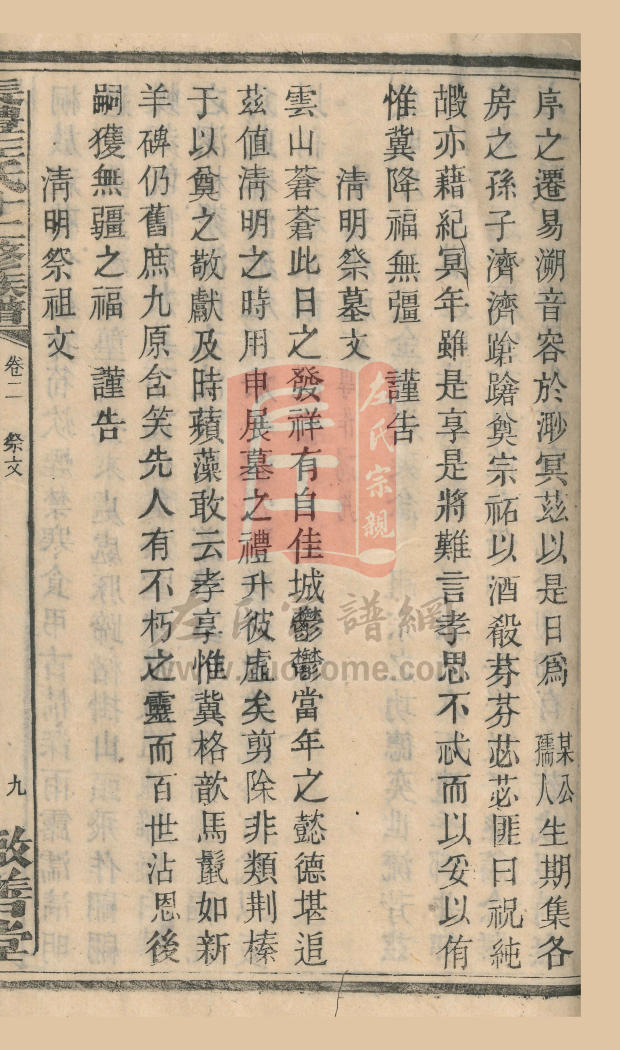 序之遷易溯音容於渺冥茲以是日爲某公孺人生期集各
房之孫子濟濟蹌蹌奠宗祏以酒殽芬芬苾苾匪曰祝純
嘏亦藉紀冥年雖是享是將難言孝思不忒而以妥以侑
惟冀降福無彊 謹告
清明祭墓文
雲山蒼蒼此日之發祥有自佳城鬱鬱當年之懿德堪追
茲值淸明之時用申展墓之禮升彼虛矣剪除非類荆榛
于以奠之敬獻及時蘋藻敢云孝享惟冀格歆馬鬛如新
羊碑仍舊庶九原含笑先人有不朽之靈而百世沾恩後
嗣獲無疆之福 謹告
淸明祭祖文
左氏十二修族譜
卷二
祭文
九
敬善堂
左氏宗親
左氏 譜網